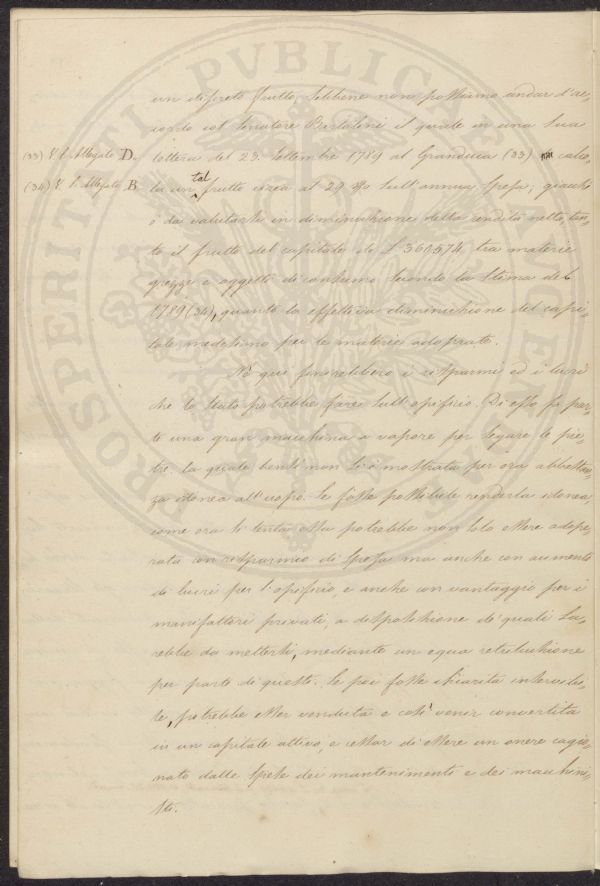 un discreto frutto, sebbene non possiamo andar d'ac-
cordo col Senatore Bartolini il quale in una sua
(33) V. l'Allegato D. lettera del 23. Settembre 1789 al Granduca (33) calco-
(34) V. l'Allegato B la un tal frutto circa al 29 % sull'annua spesa, giacchè
è da valutarsi in diminuzione della rendita netta, tan-
to il frutto del capitale di £ 360.574, tra materie
grezze e oggetti di consumo secondo la stima del
1789 (34), quanto la effettiva diminuzione del capi-
tale medesimo per le materie adoprate.
Nè qui finirebbero i risparmi ed i lucri
che lo Stato potrebbe fare sull'opificio. Di esso fa par-
te una gran macchina a vapore per segare le pie-
tre, la quale bensì non si è mostrata per ora abbastan-
za idonea all'uopo. Se fosse possibile renderla idonea,
come ora si tenta essa potrebbe non solo essere adope-
rata con risparmio di spesa ma anche con aumento
di lucri per l'opificio, e anche con vantaggio per i
manifattori privati, a disposizione de' quali sa-
rebbe da mettersi, mediante un equa retribuzione
per parte di questi. Se poi fosse chiarita inservibi-
le, potrebbe esser venduta e così venir convertita
in un capitale attivo, e cessar di essere un onere cagio-
nato dalle spese dei mantenimenti e dei macchini-
sti.
PROSPERITATI PVBLICAE AVGENDAE